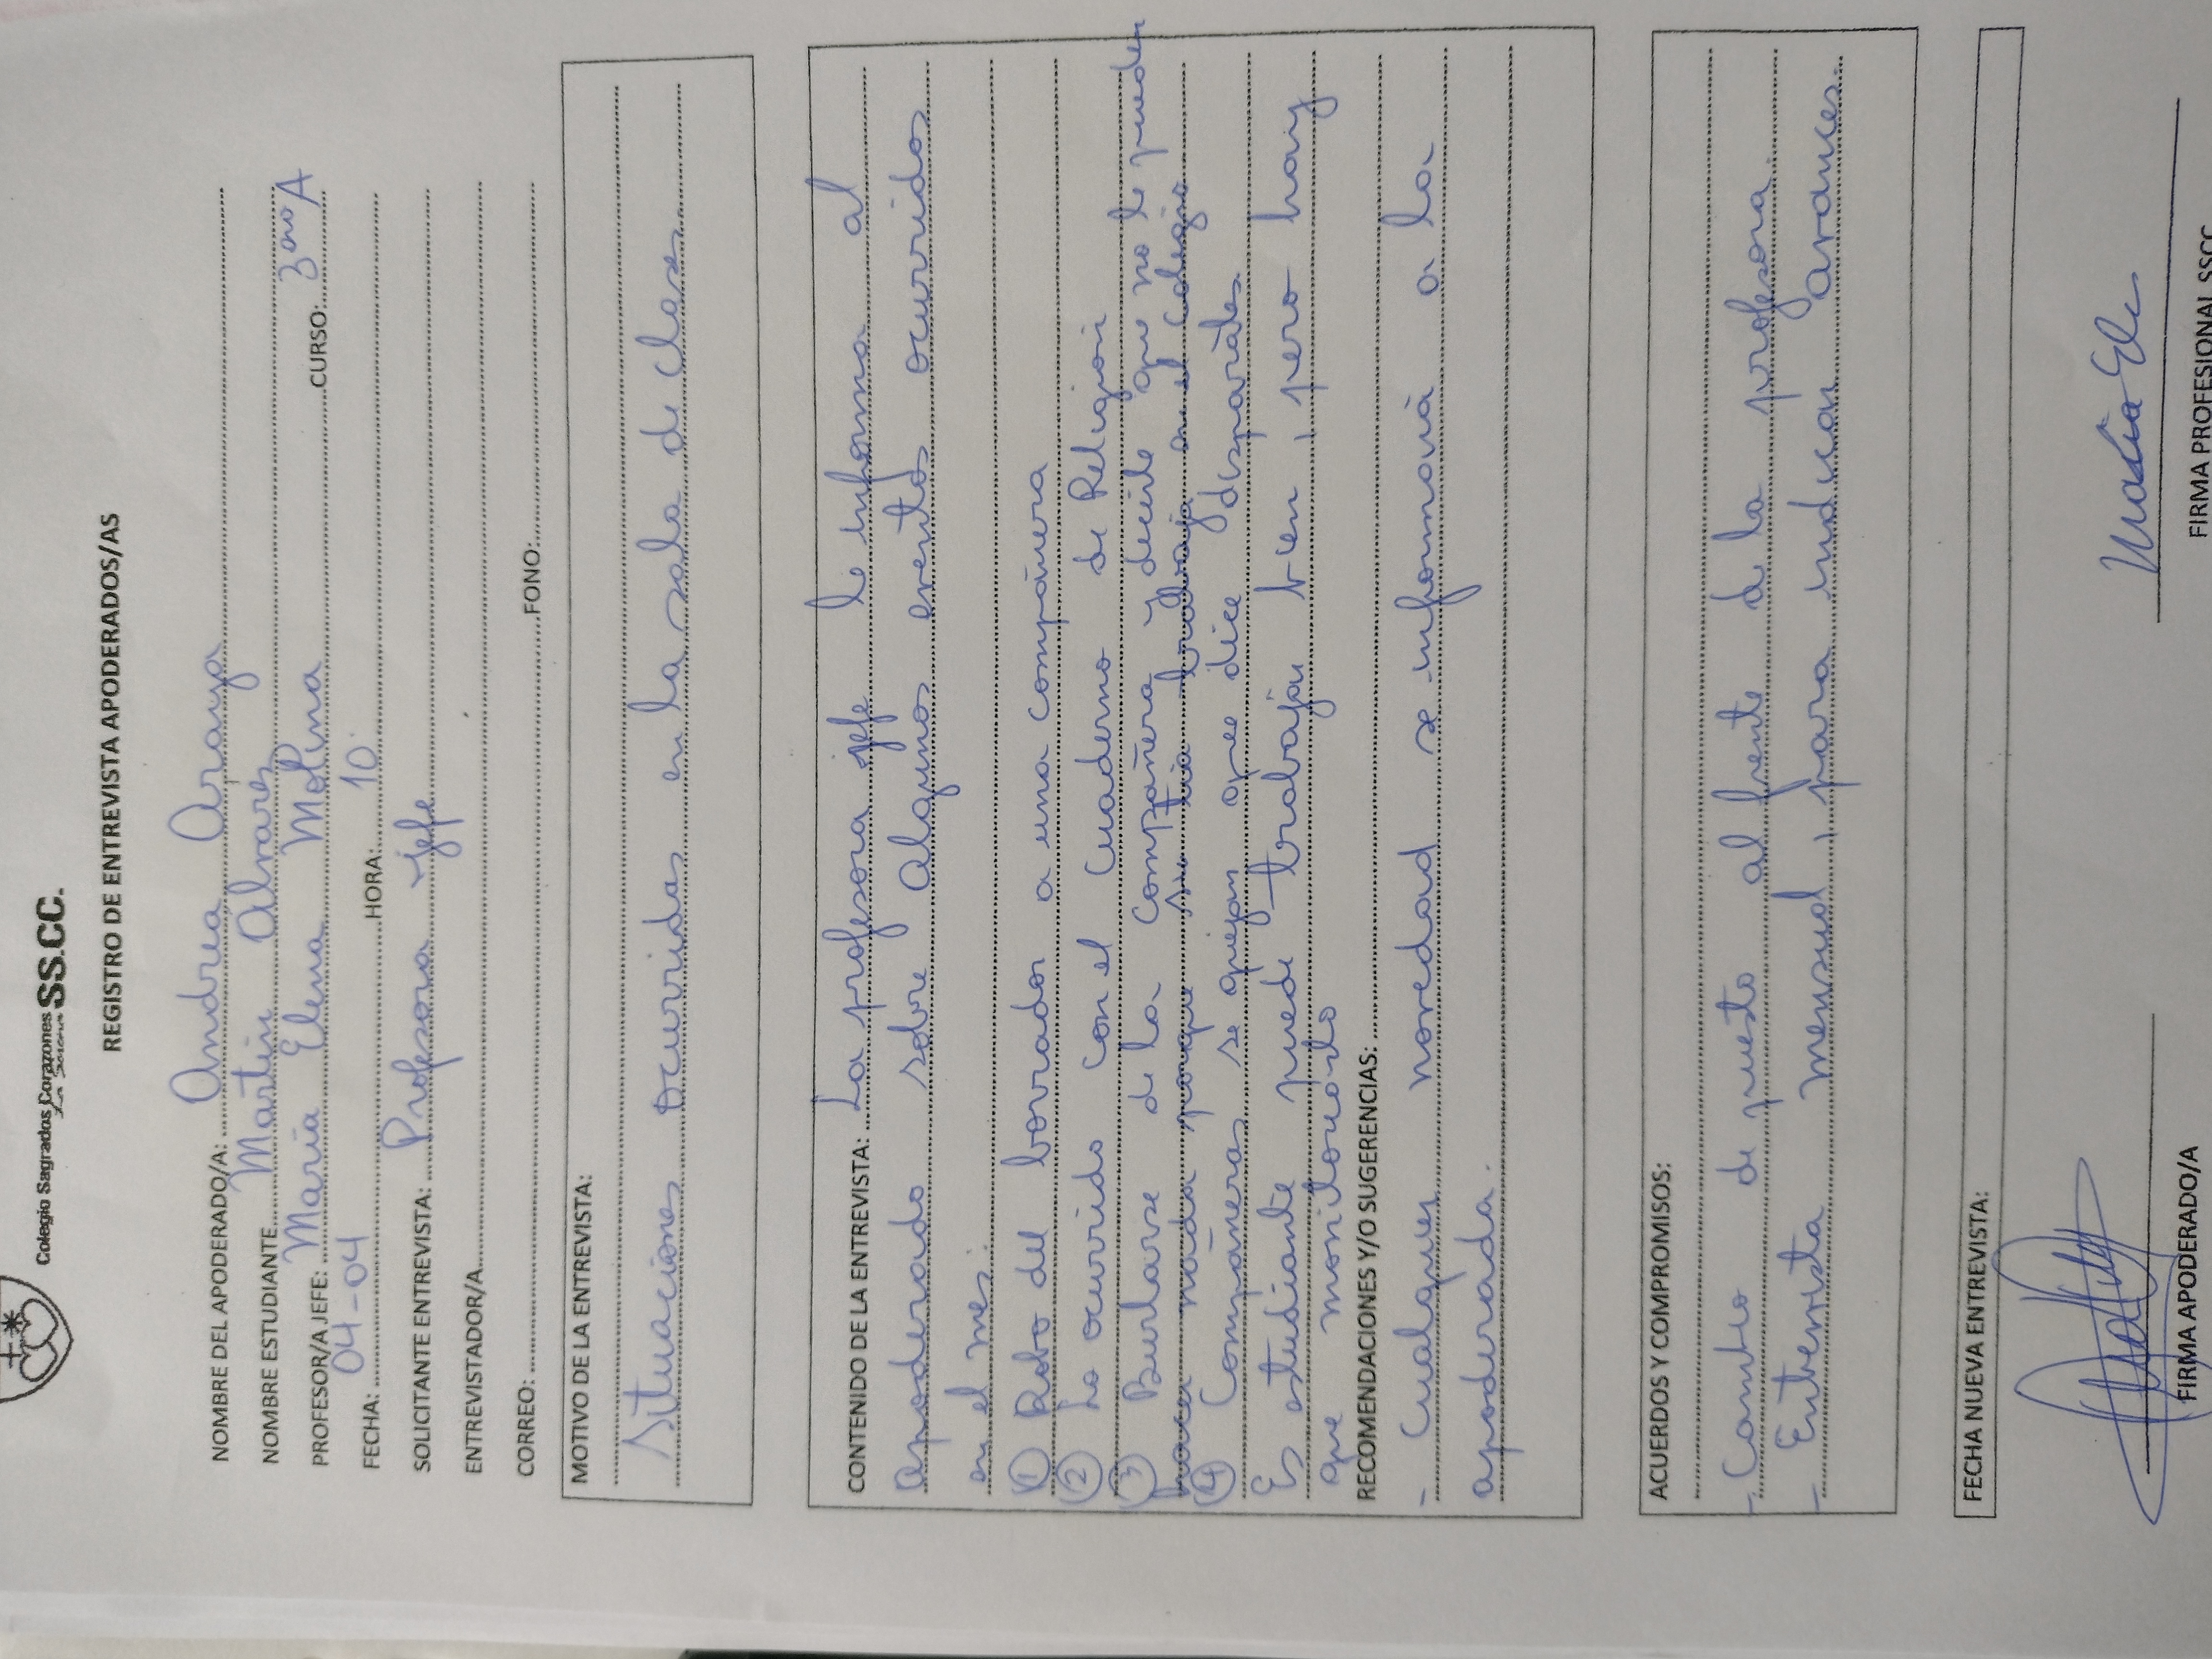 Colegio Sagrados Corazones SS.CC.
La Serena
REGISTRO DE ENTREVISTA APODERADOS/AS
NOMBRE DEL APODERADO/A: Andrea Araya
NOMBRE ESTUDIANTE Martin Alvarez
PROFESOR/A JEFE: Maria Elena Molina CURSO: 3ero A
FECHA: 04-04 HORA: 10
SOLICITANTE ENTREVISTA: Profesora jefe
ENTREVISTADOR/A
CORREO: FONO:
MOTIVO DE LA ENTREVISTA:
Situaciones ocurridas en la sala de clases
CONTENIDO DE LA ENTREVISTA: La profesora jefe le informa al
apoderado sobre algunos eventos ocurridos
en el mes.
① Robo del borrador a una compañera
② Lo ocurrido con el cuaderno de Religión
③ Burlarse de la compañera y decirle que no le pueden
hacer nada porque su tía trabaja en el colegio
④ Compañeras se quejan que dice disparates
Es estudiante puede trabajar bien, pero hay
que monitorearlo
RECOMENDACIONES Y/O SUGERENCIAS:
- Cualquier novedad se informará a la
apoderada.
ACUERDOS Y COMPROMISOS:
- Cambio de puesto al frente de la profesora
- Entrevista mensual, para indicar avances.
FECHA NUEVA ENTREVISTA:
Maria Ele
FIRMA APODERADO/A FIRMA PROFESIONAL SSCC